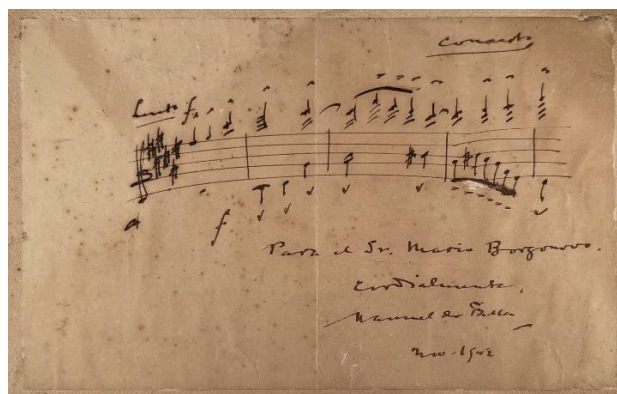 Concerto
Lento f
f
Para el Sr. Mario Borgonovo.
Cordialmente,
Manuel de Falla
Nov. 1942